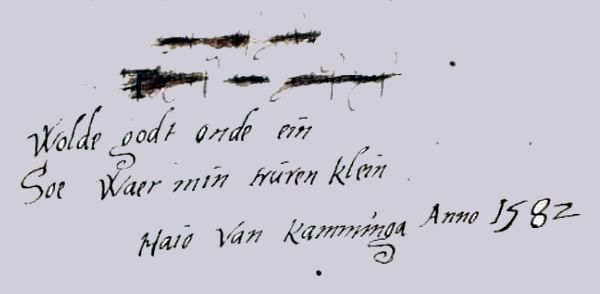 Wolde godt onde ein
Soe Waer min trúren klein
Haio Van Kamminga Anno 1582